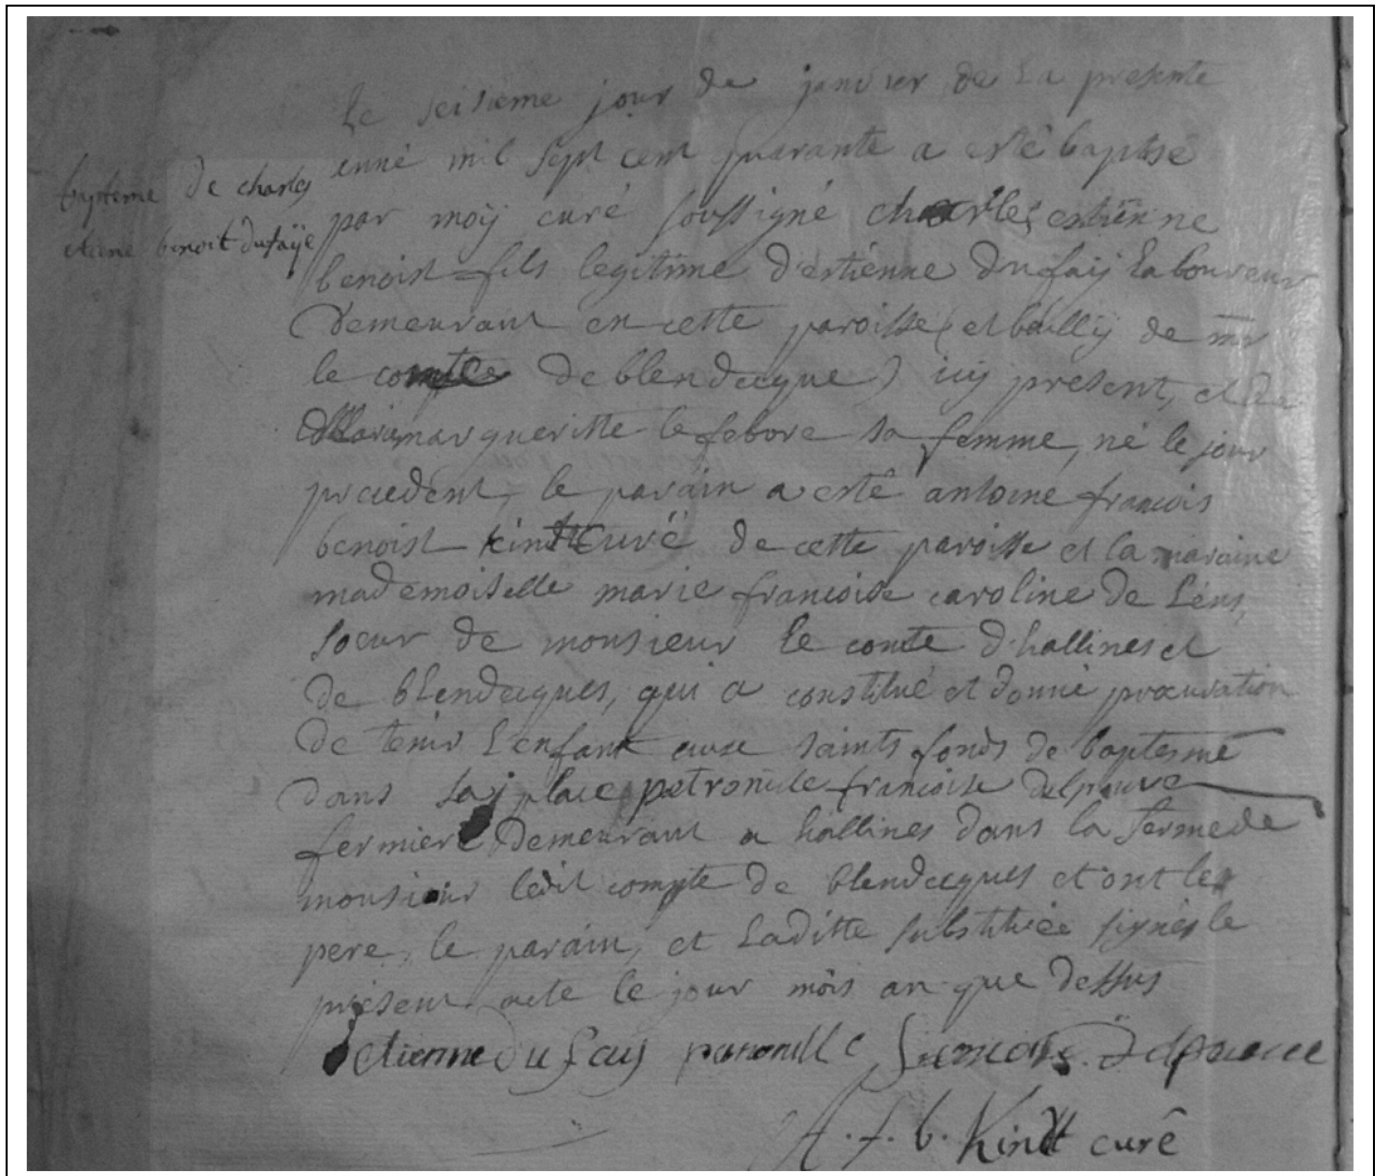 Le seisieme jour de janvier de la presente
bapteme de charles
etiene benoit dufaÿe
enné mil sept cent quarante a esté baptisé
par moÿ curé soussigné charles estiënne
benoist fils legitime d'estiénne Dufaÿ laboureur
demeurant en cette paroisse (et baillÿ de mr
le comte de blendecque) icÿ present, et de
marimargueritte lefebvre sa femme, né le jour
precedent, le parain a esté antoine francois
benoist kindt curé de cette paroisse et la maraine
mademoiselle marie francoise caroline de Léns,
soeur de monsieur le comte d'hallines et
de blendecques, qui a constitué et donné procuration
de tenir l'enfant aux saints fonds de baptesme
dans sa place petronille francoise Delpouve
fermiere demeurant a hallines dans la ferme de
monsieur ledit compte de blendecques et ont le
pere, le parain, et laditte substituée signés le
présent acte le jour mois an que dessus
etienne du faÿ francoise Delpouve
A. f. b. Kindt curê